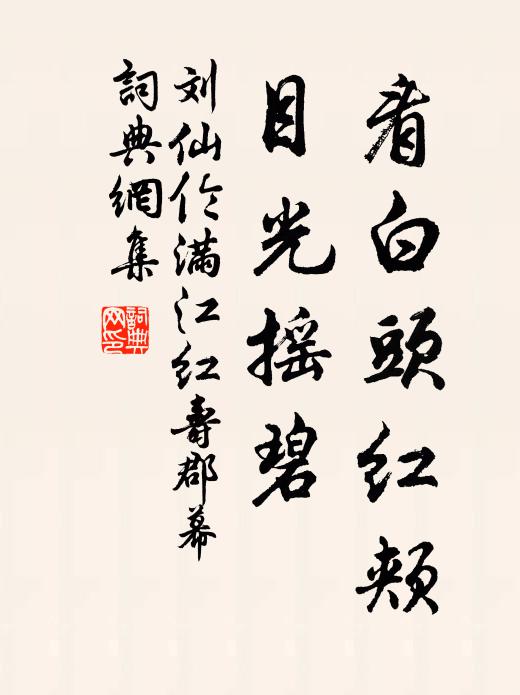 看白頭红頰
目光摇碧
刘仙伦满江红壽郡幕
詞典網集
詞典网印